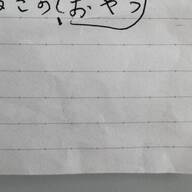 このおやつ